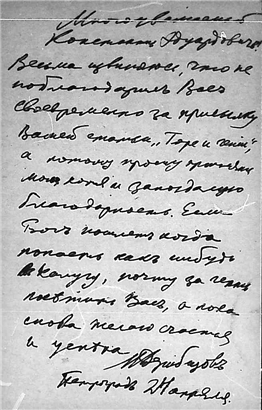 Многоуважаемый
Константин Эдуардович!
Весьма извиняюсь, что не
поблагодарил Вас
своевременно за присылку
Вашей статьи „Горе и гений“,
а потому прошу принять
мою хотя и запоздалую
благодарность. Если
Бог пошлет когда
попасть как нибудь
в Калугу, почту за
посетить Вас, а пока
снова желаю счастья
и успеха
Петроград апреля